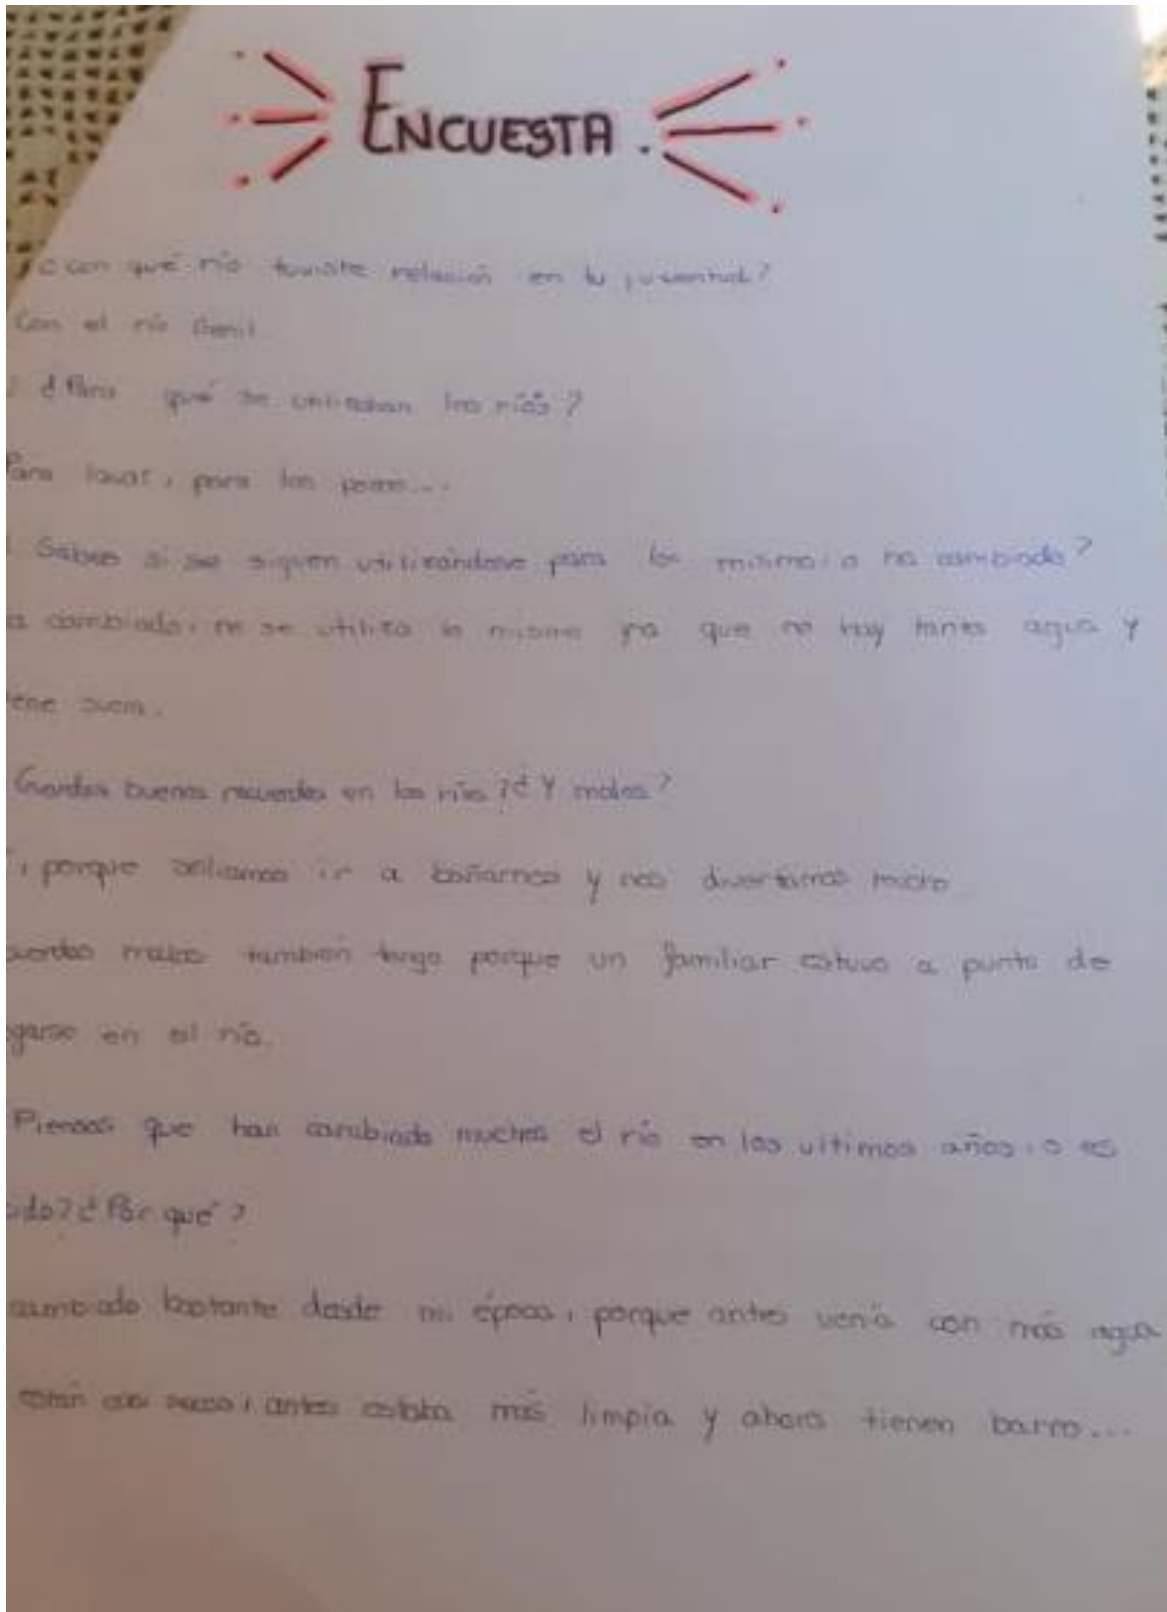 ENCUESTA.
¿Con qué río tuviste relación en tu juventud?
Con el río Genil.
¿Para qué se utilizaban los ríos?
Para lavar, para los
Sabes si se siguen utilizándose para lo mismo o ha cambiado?
a cambiado, no se utiliza lo mismo ya que no hay tanta agua y
ene
Guardas buenos recuerdos en los ríos? ¿Y malos?
, porque solíamos ir a bañarnos y nos divertíamos mucho
uerdos malos también tengo porque un familiar estuvo a punto de
garse en el río.
Piensas que han cambiado mucho el río en los ultimos años, o es
ado? ¿Por qué?
cambiado bastante desde mi época, porque antes venía con más agua
están casi secos, antes estaba más limpia y ahora tienen barro...